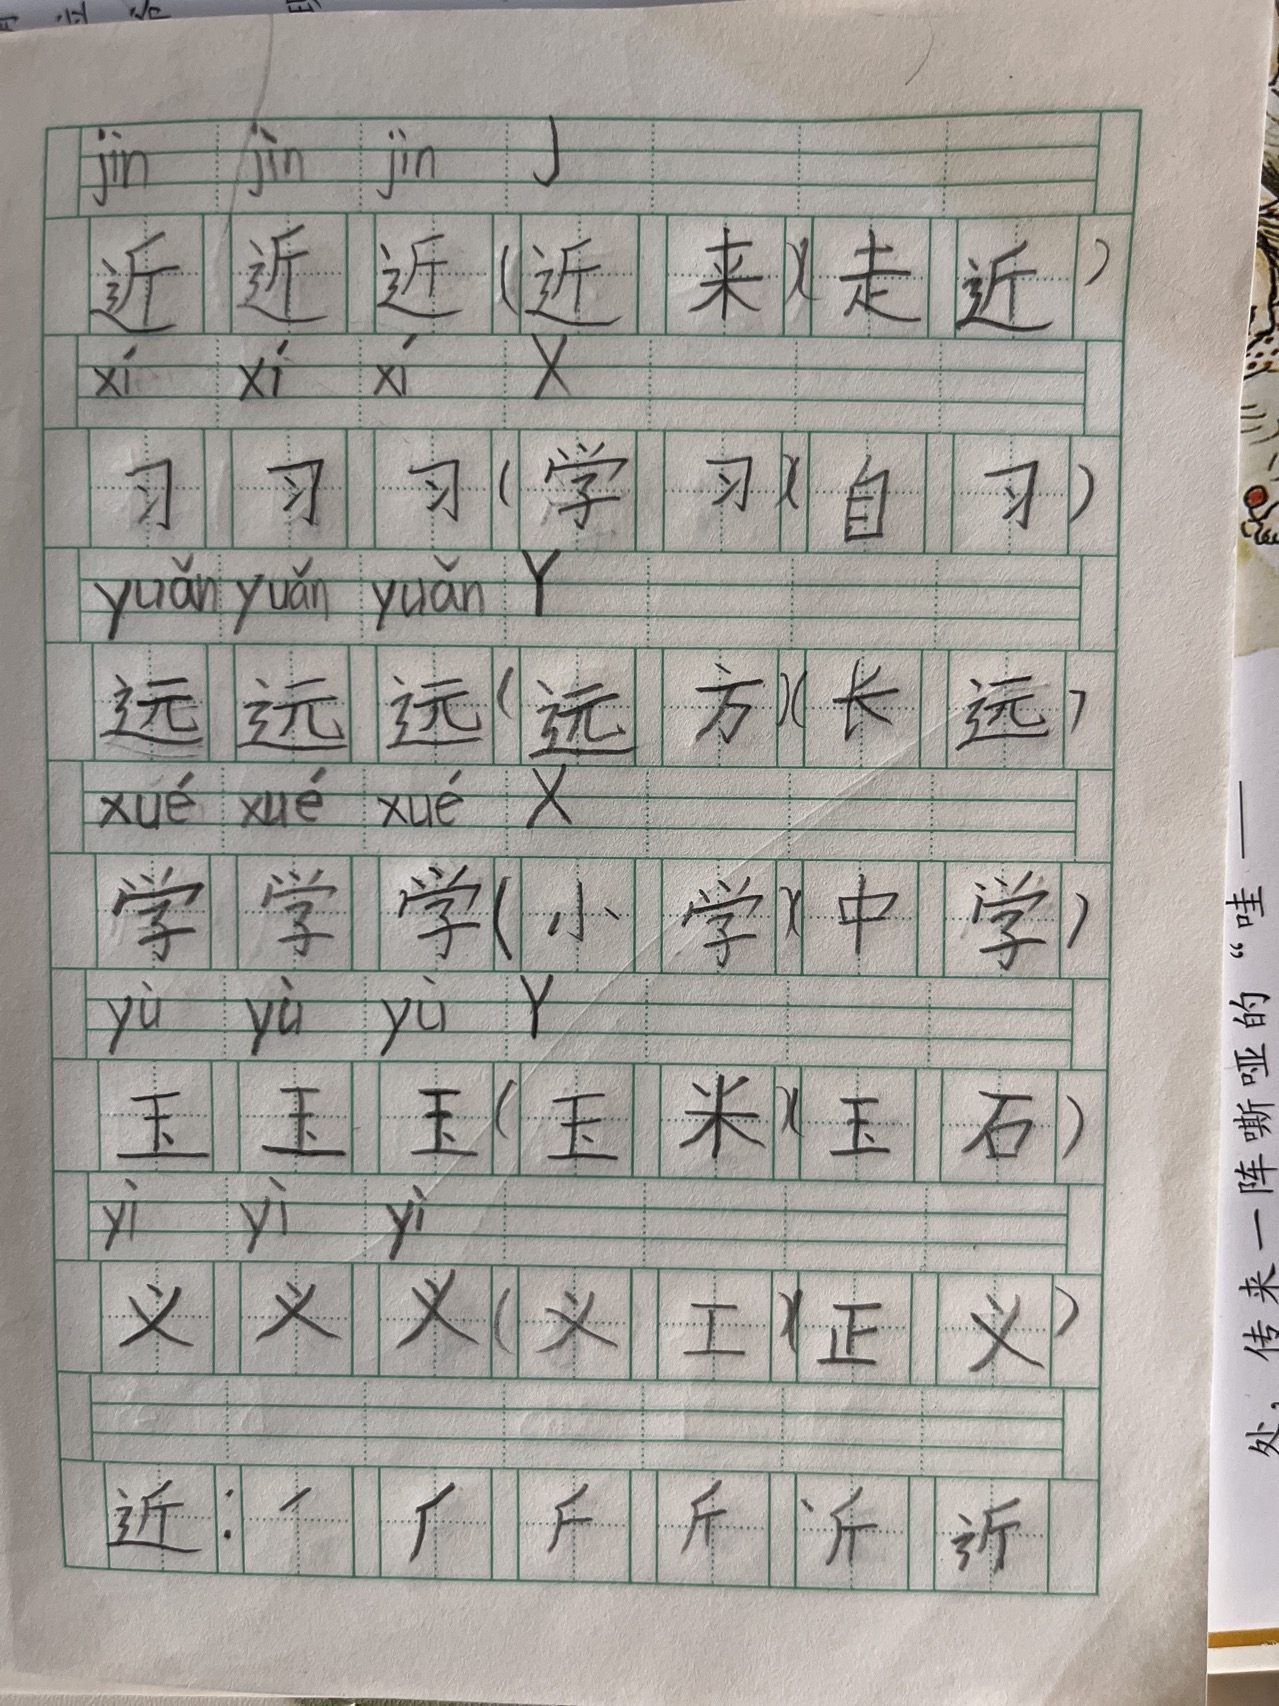 jìn jìn jìn J
近 近 近 (近 来)(走 近)
xí xí xí X
习 习 习 (学 习)(自 习)
yuǎn yuǎn yuǎn Y
远 远 远 (远 方)(长 远)
xué xué xué X
学 学 学 (小 学)(中 学)
yù yù yù Y
玉 玉 玉 (玉 米)(玉 石)
yì yì yì
义 义 义 (义 工)(正 义)
近:
处,传来一阵嘶哑的“哇——